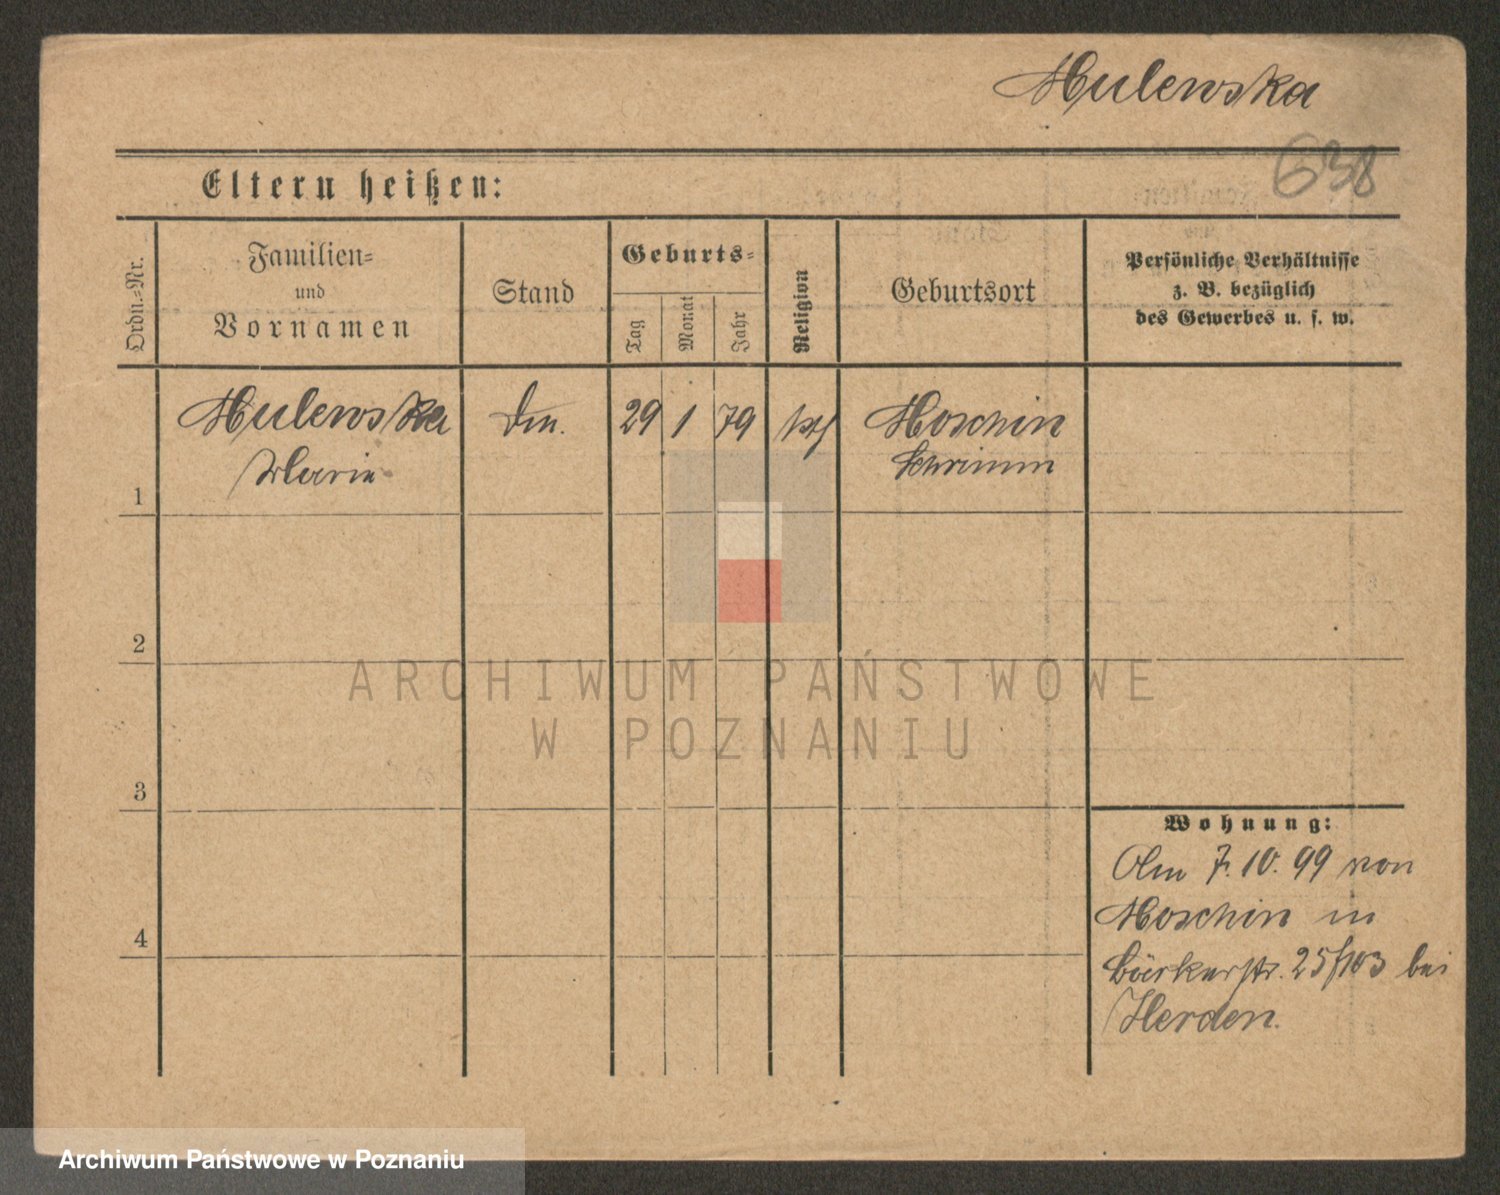 Mulewska
638
Eltern heißen:
Ordn.-Nr.
Familien-
und
Vornamen
Stand
Geburts-
Tag
Monat
Jahr
Religion
Geburtsort
Persönliche Verhältnisse
z. B. bezüglich
des Gewerbes u. s. w.
Mulewska
Marie
29 1 79
kth
Moschin
Schrimm
1
2
3
4
Wohnung:
Am 7.10.99 von
Moschin in
Bäckerstr. 25/ bei
Herden.
ARCHIWUM PAŃSTWOWE
W POZNANIU
Archiwum Państwowe w Poznaniu